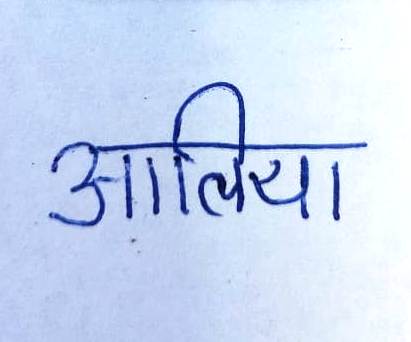 आलिया